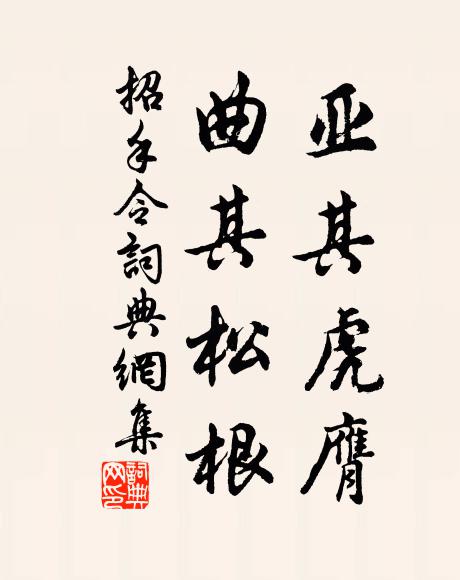 亚其虎膺
曲其松根
招手令詞典網集
詞典網印